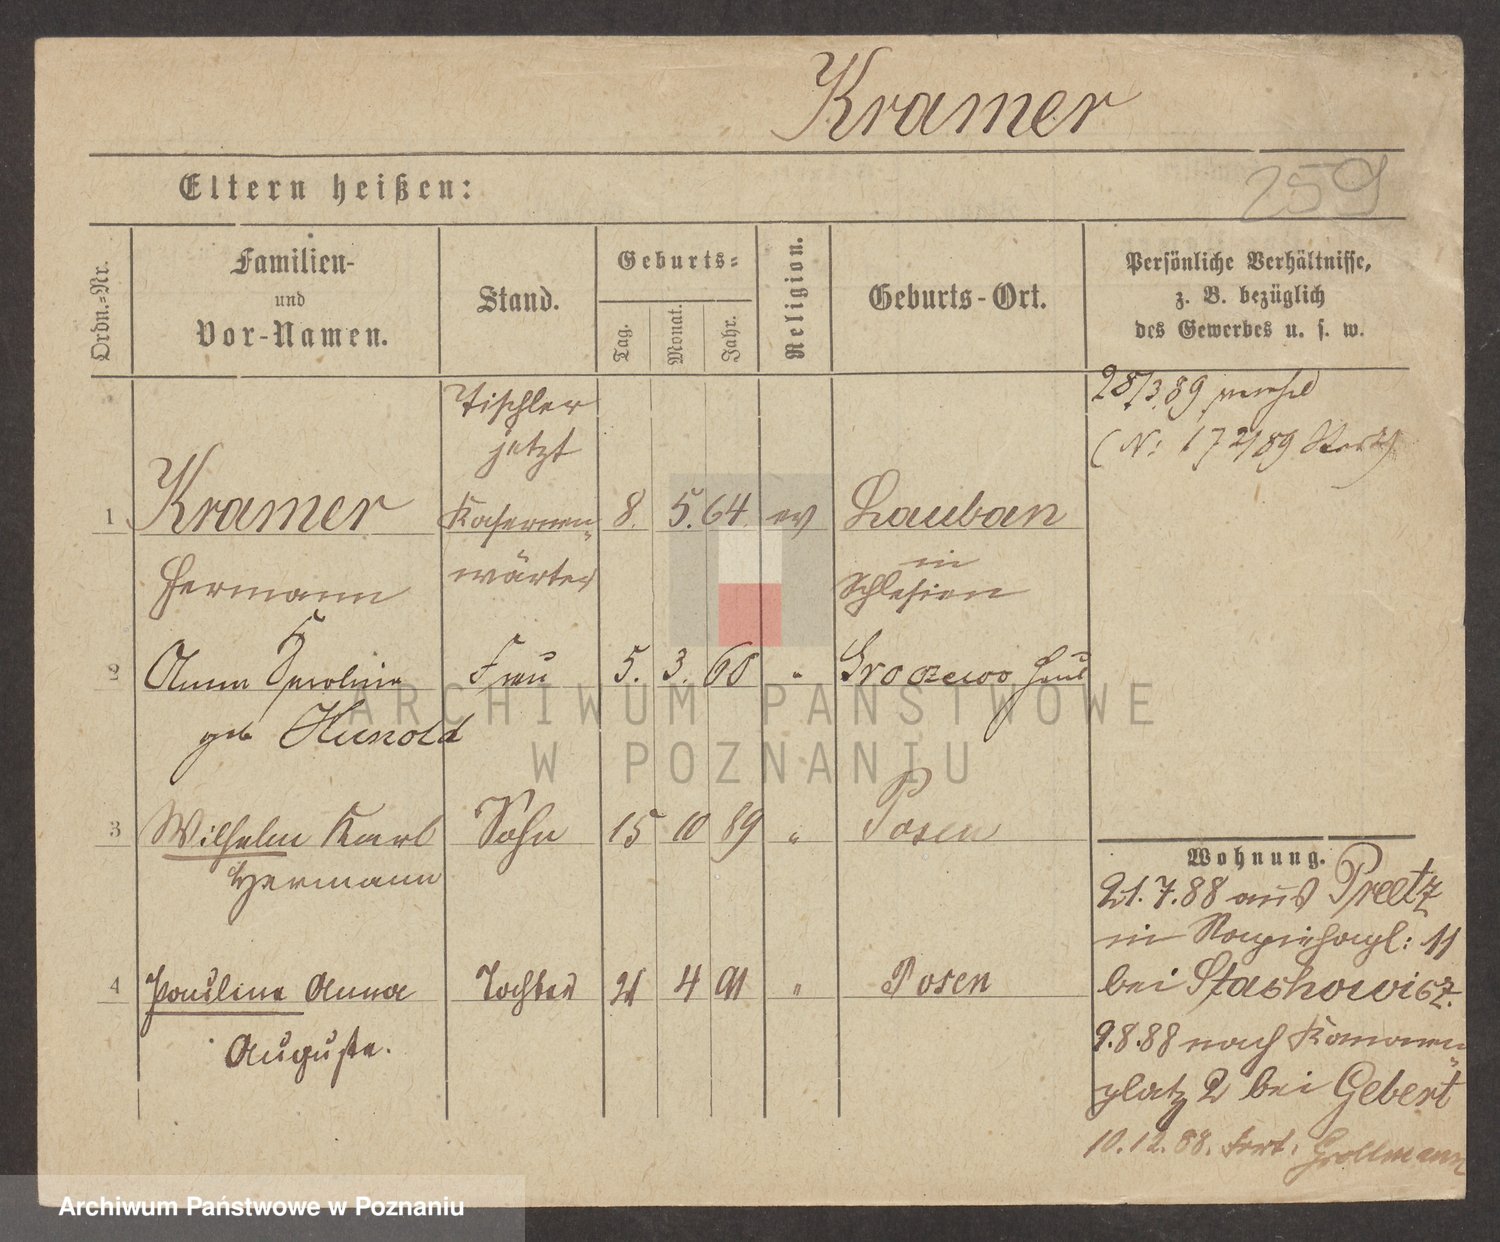 Kramer
259
Eltern heißen:
Ordn.-Nr.
Familien-
und
Vor-Namen.
Stand.
Geburts-
Tag.
Monat.
Jahr.
Religion.
Geburts-Ort.
Persönliche Verhältnisse,
z. B. bezüglich
des Gewerbes u. s. w.
28/3.89
(N: 172/89
Tischler
jetzt
1 Kramer Kasernen- 8. 5. 64 ev Lauban
Hermann wärter in
Schlesien
2 Anna Karoline Frau 5. 3. 60 "
geb Hunold
3 Wilhelm Karl Sohn 15 10 89 " Posen
Hermann
4 Pauline Anna Tochter 21 4 91 " Posen
Auguste.
Wohnung.
21.7.88 aus Preetz
in 11
bei Stachowicz.
9.8.88 nach Kanonen-
platz 2 bei Gebert
10.12.88. Fort. Grollmann
ARCHIWUM PAŃSTWOWE
W POZNANIU
Archiwum Państwowe w Poznaniu